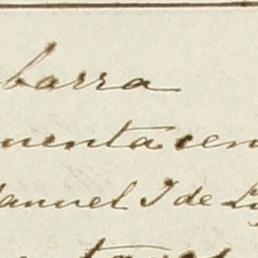 barra
uenta cen
Manuel J de Lu